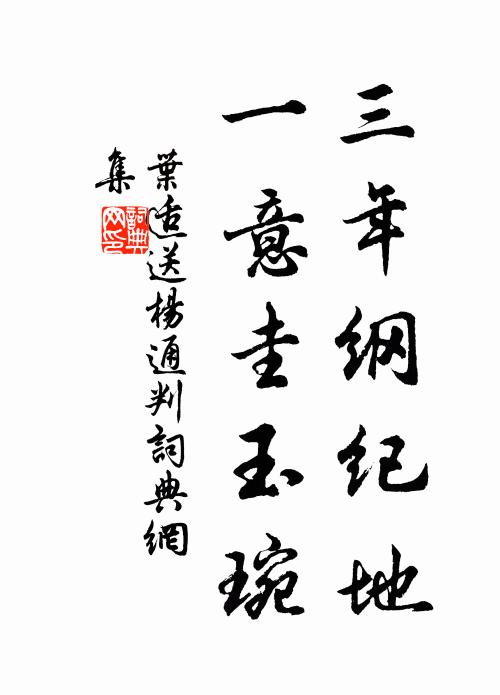 三年纲纪地
一意圭玉琬
葉适送楊通判詞典網
集
詞典網印